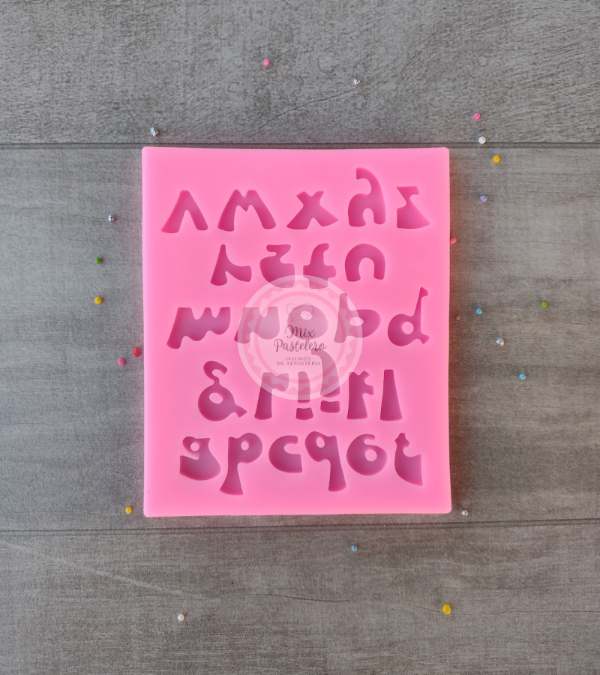 v w x y z
r s t u
m n o p q
Mix
Pastelero
INSUMOS
DE REPOSTERIA
g h i j k l
a b c d e f